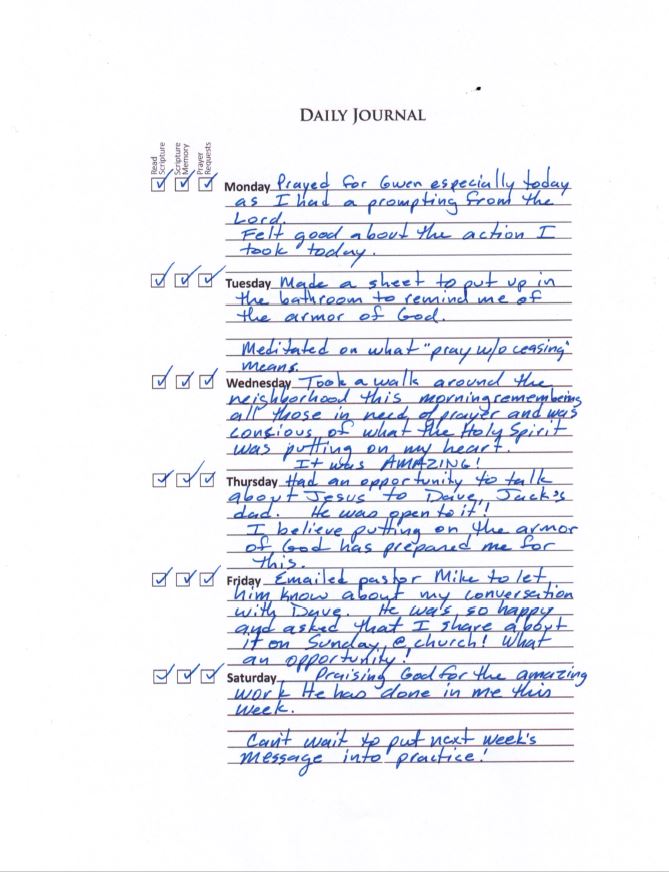 DAILY JOURNAL
Read Scripture
Scripture Memory
Prayer Requests
Monday Prayed for Gwen especially today
as I had a prompting from the
Lord.
Felt good about the action I
took today.
Tuesday Made a sheet to put up in
the bathroom to remind me of
the armor of God.
Meditated on what "pray w/o ceasing"
means.
Wednesday Took a walk around the
neighborhood this morning remembering
all those in need of prayer and was
consious of what the Holy Spirit
was putting on my heart.
It was AMAZING!
Thursday Had an opportunity to talk
about Jesus to Dave, Jack's
dad. He was open to it!
I believe putting on the armor
of God has prepared me for
this.
Friday Emailed pastor Mike to let
him know about my conversation
with Dave. He was so happy
and asked that I share about
it on Sunday @ church! What
an opportunity!
Saturday Praising God for the amazing
work He has done in me this
week.
Can't wait to put next week's
message into practice!